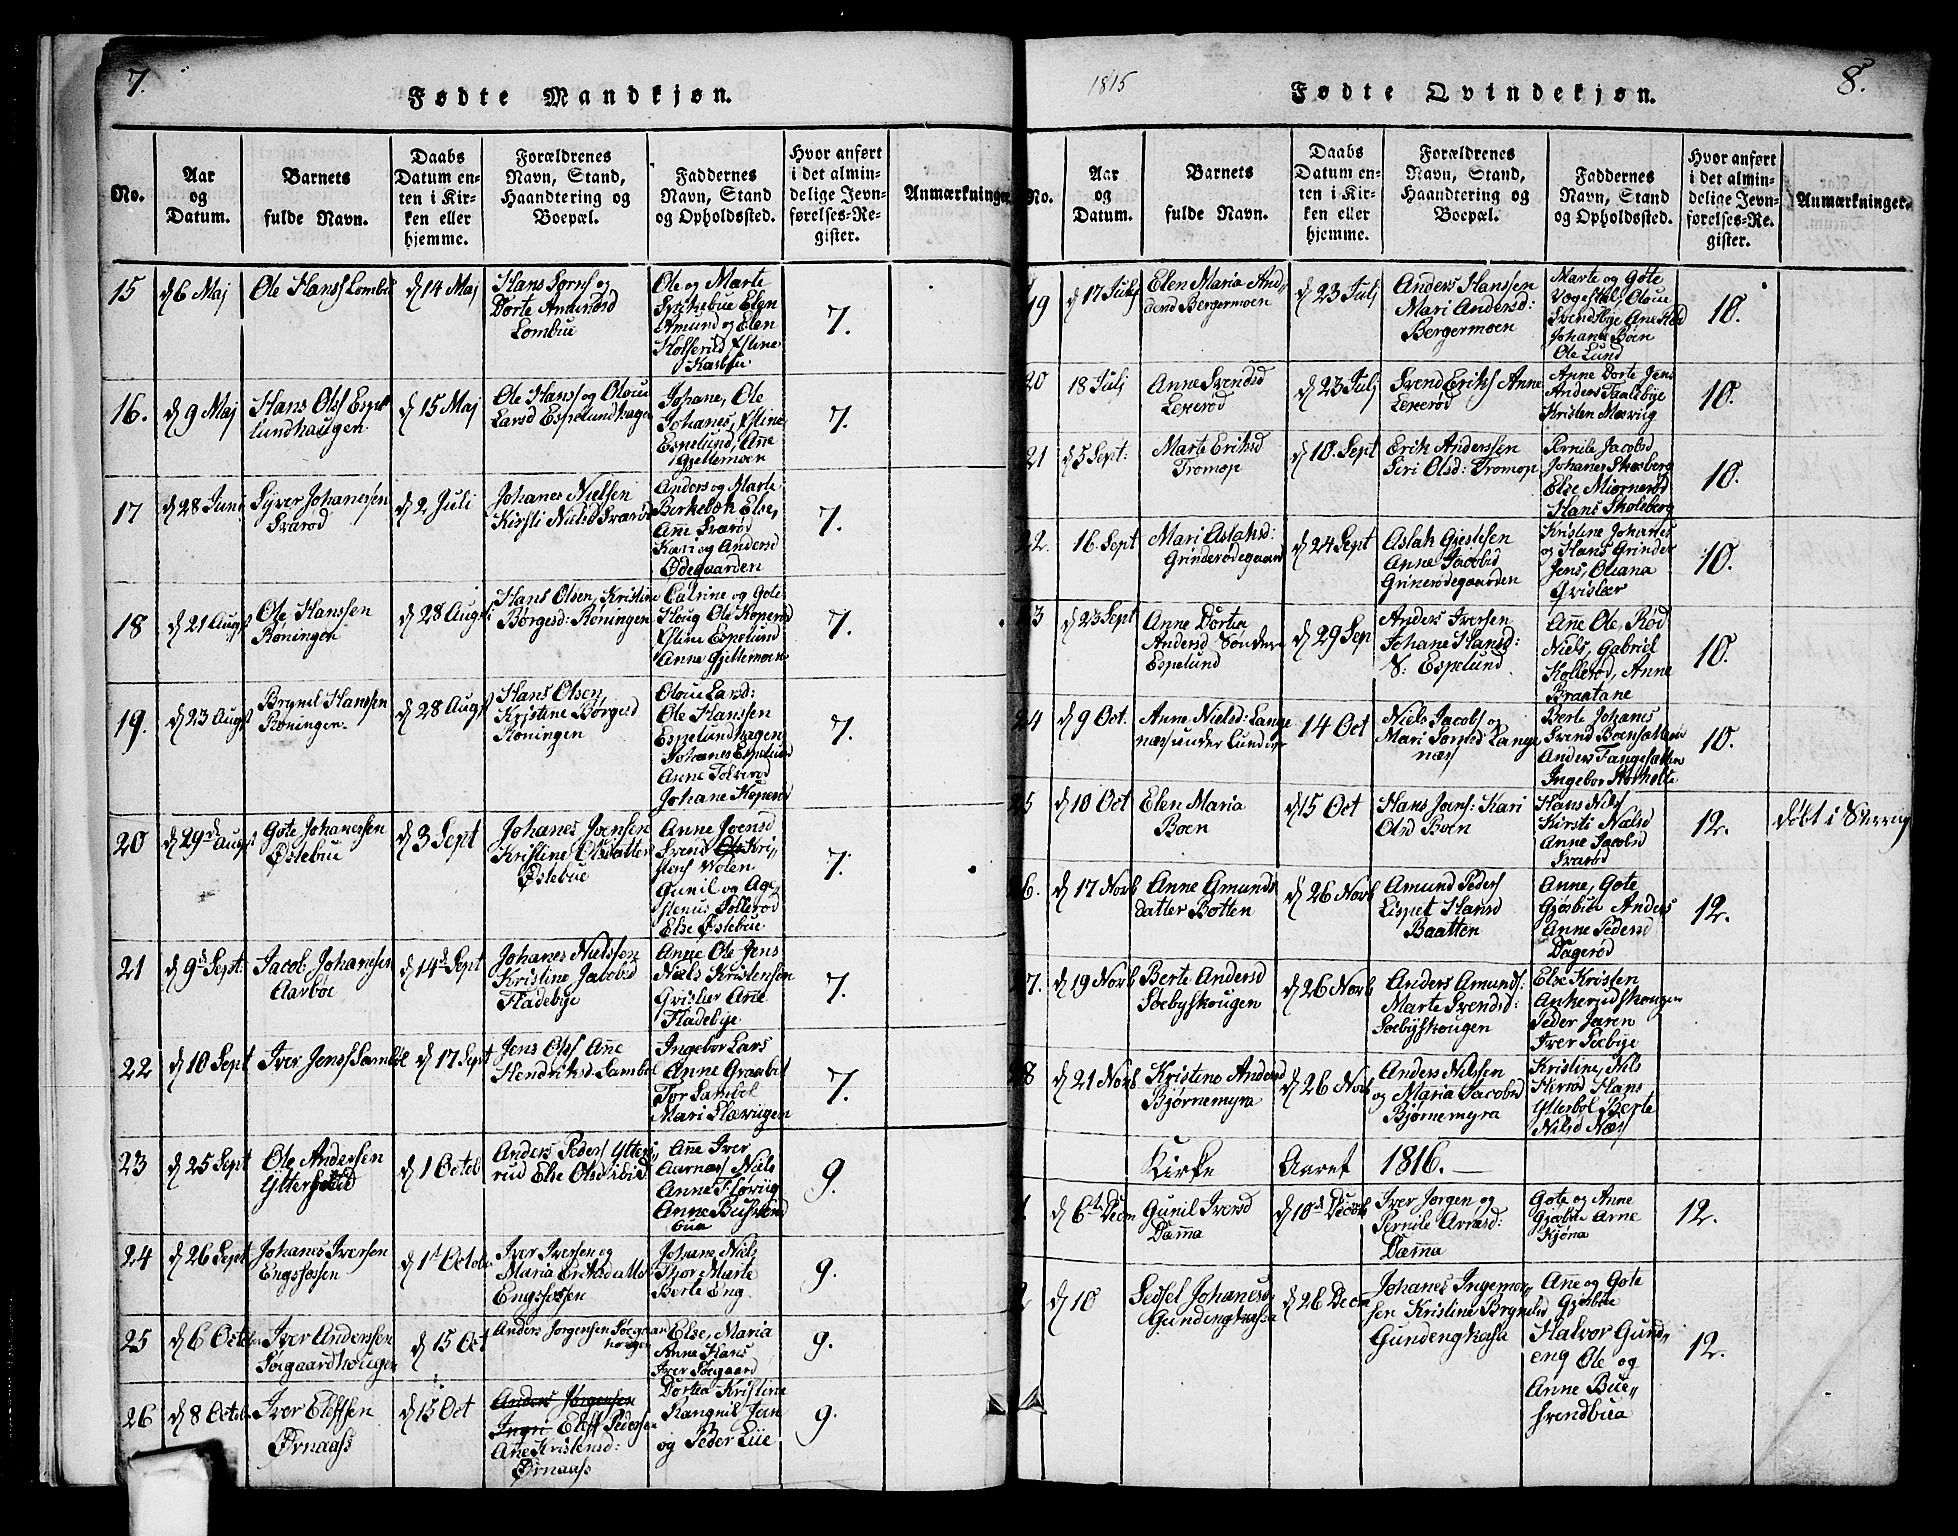 7.
Fødte Mandkjøn.
No.
Aar
og
Datum.
Barnets
fulde Navn.
Daabs
Datum en-
ten i Kir-
ken eller
hjemme.
Forældrenes
Navn, Stand,
Haandtering og
Boepæl.
Faddernes
Navn, Stand
og Opholdssted.
Hvor anført
i det almin-
delige Jevn-
førelses-Re-
gister.
Anmærkninger
15
d 6 Maj
Ole Hanss Lombue
d 14 Maj
Hans Jørns og
Dorte Amundsd
Lombue
Ole og Marte
Amund og Elen
7.
16.
d 9 Maj
Hans Olss Espe
lundhaugen
d 15 Maj
Ole Hanss og Oloue
Larsd Espelundhagen
Johane, Ole
Johanes, Stine
Espelund, Ane
Gjellemoen
7.
17
d 28 Juni
Syver Johanessen
Svarød
d 2 Juli
Johanes Nielsen
Kirsti Nielsd Svarød
Anders og Marte
Birkebek Else,
Ane Svarød
Kari og Andersd
Ødegaarden
7.
18
d 21 August
Ole Hanssen
Roningen
d 28 August
Hans Olsen, Kristine
Børgesd: Roningen
Catrine og Gote
Houg Ole Koperød
Stine Espelund
Anne Gjellemoen
7.
19.
d 23 August
Brynil Hanssen
Roningen
d 28 August
Hans Olsen
Kristine Børgesd
Roningen
Oloue Larsd:
Ole Hanssen
Espelundhagen
Johanes Espelund
Anne Tolverød
Johane Koperød
7.
20
d 29de August
Gote Johanessen
Østebue
d 3 Sept
Johanes Joensen
Kristine Olsdatter
Østebue
Anne Joensd
Svend Kri
stens Volen
Gunil og Age
Else Østebue
7.
21
d 9d Sept.
Jacob Johanesen
Aarboe
d 14d Sept
Johanes Nielssen
Kristine Jacobsd
Fladebye
Anne Ole Jens
Niels Kristensen
Grislier Ane
Fladebye
7.
22
d 10 Sept
Iver Jenss Sambøl
d 17 Sept
Jens Olss Ane
Hendriksd Sambøl
Ingebor Lars
Anne Graabøl
Tor Sambøl
Mari Slævigen
7.
23
d 25 Sept
Ole Andersen
d 1 Octob
Anders Peders Ytte
rud Else Olsd ibid
Ane Iver
Aarnæs Niels
Anne
Anne
bua
9.
24
d 26 Sept
Johanes Iversen
Engsfossen
d 1t Octob
Iver Iversen og
Maria Eriksdatter
Engsfossen
Johane, Niels
Thor Marte
Berte Eng.
9.
25
d 6 Octob
Iver Anderssen
Søegaardhougen
d 15 Oct
Anders Jørgensen Søegaard
hougen
Else, Maria
Anne Hans
Iver Søegaard
9.
26
d 8 Octob
Iver Eleffsen
Ørnaass
d 15 Oct
Anders Jørgensen
Ingri Eleff Pedersen
Ane Kristensd:
Ørnaass
Dortea Kristine
Rangnil Joen
og Peder Lüe
9.
1815
Fødte Qvindekjøn.
8.
No.
Aar
og
Datum.
Barnets
fulde Navn.
Daabs
Datum en-
ten i Kir-
ken eller
hjemme.
Forældrenes
Navn, Stand,
Haandtering og
Boepæl.
Faddernes
Navn, Stand
og Opholdssted.
Hvor anført
i det almin-
delige Jevn-
førelses-Re-
gister.
Anmærkninger.
19
d 17 Julj
Elen Maria An
dersd Bergermoen
d 23 Julj
Anders Hanssen
Mari Andersd:
Bergermoen
Marte og Gote
Oloue
Svendsbye Ane
Johane Boen
Ole Lund
10.
20
18 Julj
Anne Svendsd
Lexerød
d 23 Julj
Svend Eriks Anne
Lexerød
Anne Dorte Jens
Anders Taalebye
Kristen Mærvig
10.
21
d 5 Sept:
Marte Eriksd
Tromop
d 10. Sept
Erik Anderssen
Siri Olsd: Tromop
Pernile Jacobsd
Johanes Skosberg
Else Miørnerød
Hans Skoleberg
10.
22.
16. Sept
Mari Aslaksd:
Grinderødegaard
d 24 Sept
Aslak Gjestesen
Anne Jacobsd
Grinerødegaarden
Kristine Johanes
og Hans Grinder
Jens, Oliana
Grislier
10.
23
d 23 Sept
Anne Dortea
Andersd Sønder
Espelund
d 29 Sep
Anders Iversen
Johane Hansd:
S: Espelund
Ane Ole, Rød
Niels, Gabriel
Kollerød, Anne
Braatane
10.
24
d 9 Oct.
Anne Nielsd: Lange
næs under Lunder
14 Oct
Niels Jacobs og
Mari Sørnsd Lange
næs
Berte Johanes
Svend Boensætteren
Anders Tangesætter
Ingebor Storholte
10.
25
d 10 Oct
Elen Maria
Boen
d 15 Oct
Hans Joens: Kari
Olsd Boen
Hans Nils
Kirsti Nielsd
Anne Jacobsd
Svarød
12.
døbt i Sverrig
26.
d 17 Novb
Anne Amunds
datter Botten
d 26 Novb
Amund Peders
Lispet Hansd
Baatten
Anne, Gote
Gjøsbue Anders
Anne Pedersd
Dagerød
12.
27.
d 19 Novb
Berte Andersd
Soebyskougen
d 26 Novb
Anders Amunds:
Marte Svendsd:
Soebyskougen
Else Kristen
Ankerudskougen
Peder Jaren
Iver Soebye
28
d 21 Novb
Kristine Andersd
Bjørnemyra
d 26 Novb
Anders Nilssen
og Maria Jacobsd
Bjørnemyra
Kristine, Nils
Hans
Ytterbøl Berte
Nilsd Næss
Kirke Aaret 1816.
1.
d 6te Decm
Gunil Iversd
Damma
d 10de Decbr
Iver Jørgen og
Pernile Arnesd:
Damma
Gote og Anne
Gjøsbue Arne
Kjøna
12.
2
d 10
Sedsel Johanesd
Gundengkasa
d 26 Decm
Johanes Ingemor
sen Kristine Brynelsd
Gundengkasa
Ane og Gote
Gjøsbue
Halvor Gund
eng Ole og
Anne Bue
Svendbua
12.